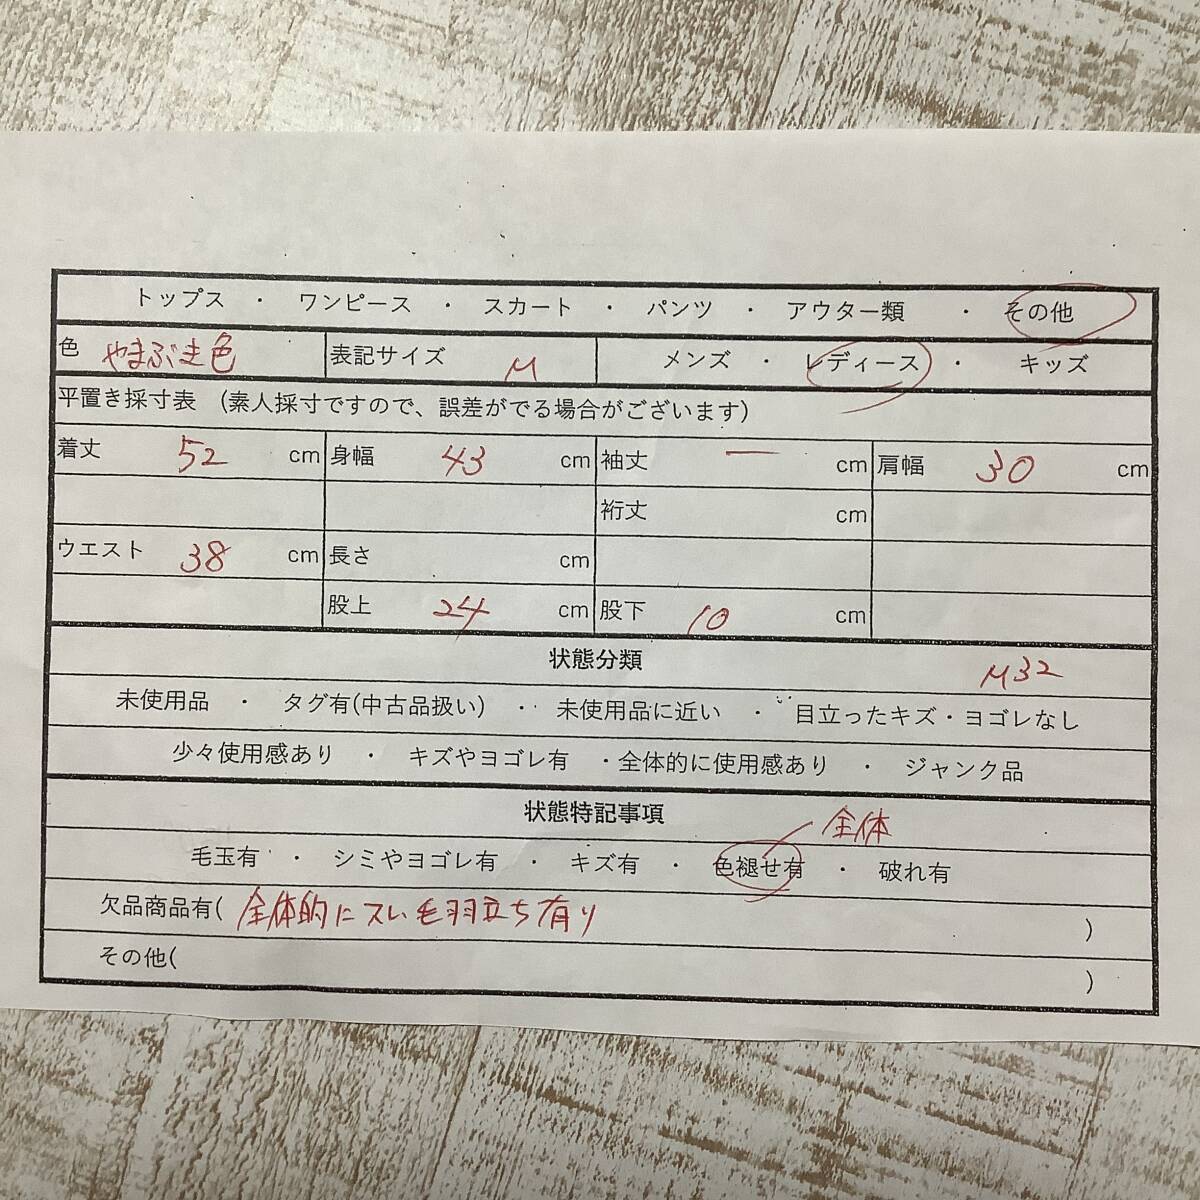 トップス ・ ワンピース ・ スカート ・ パンツ ・ アウター類 ・ その他
色 やまぶき色 表記サイズ M メンズ ・ レディース ・ キッズ
平置き採寸表 (素人採寸ですので、誤差がでる場合がございます)
着丈 52 cm 身幅 43 cm 袖丈 ー cm 肩幅 30 cm
裄丈 cm
ウエスト 38 cm 長さ cm
股上 24 cm 股下 10 cm
状態分類 M32
未使用品 ・ タグ有(中古品扱い) ・ 未使用品に近い ・ 目立ったキズ・ヨゴレなし
少々使用感あり ・ キズやヨゴレ有 ・全体的に使用感あり ・ ジャンク品
状態特記事項 全体
毛玉有 ・ シミやヨゴレ有 ・ キズ有 ・ 色褪せ有 ・ 破れ有
欠品商品有( 全体的にスレ毛羽立ち有り )
その他( )